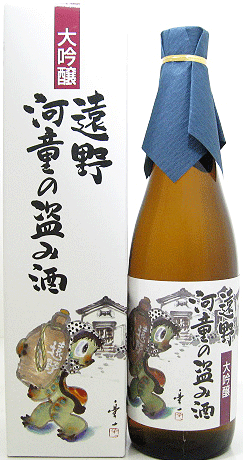 大吟醸
遠野
河童の盗み酒
遠野
遠野
河童の盗み酒
大吟醸